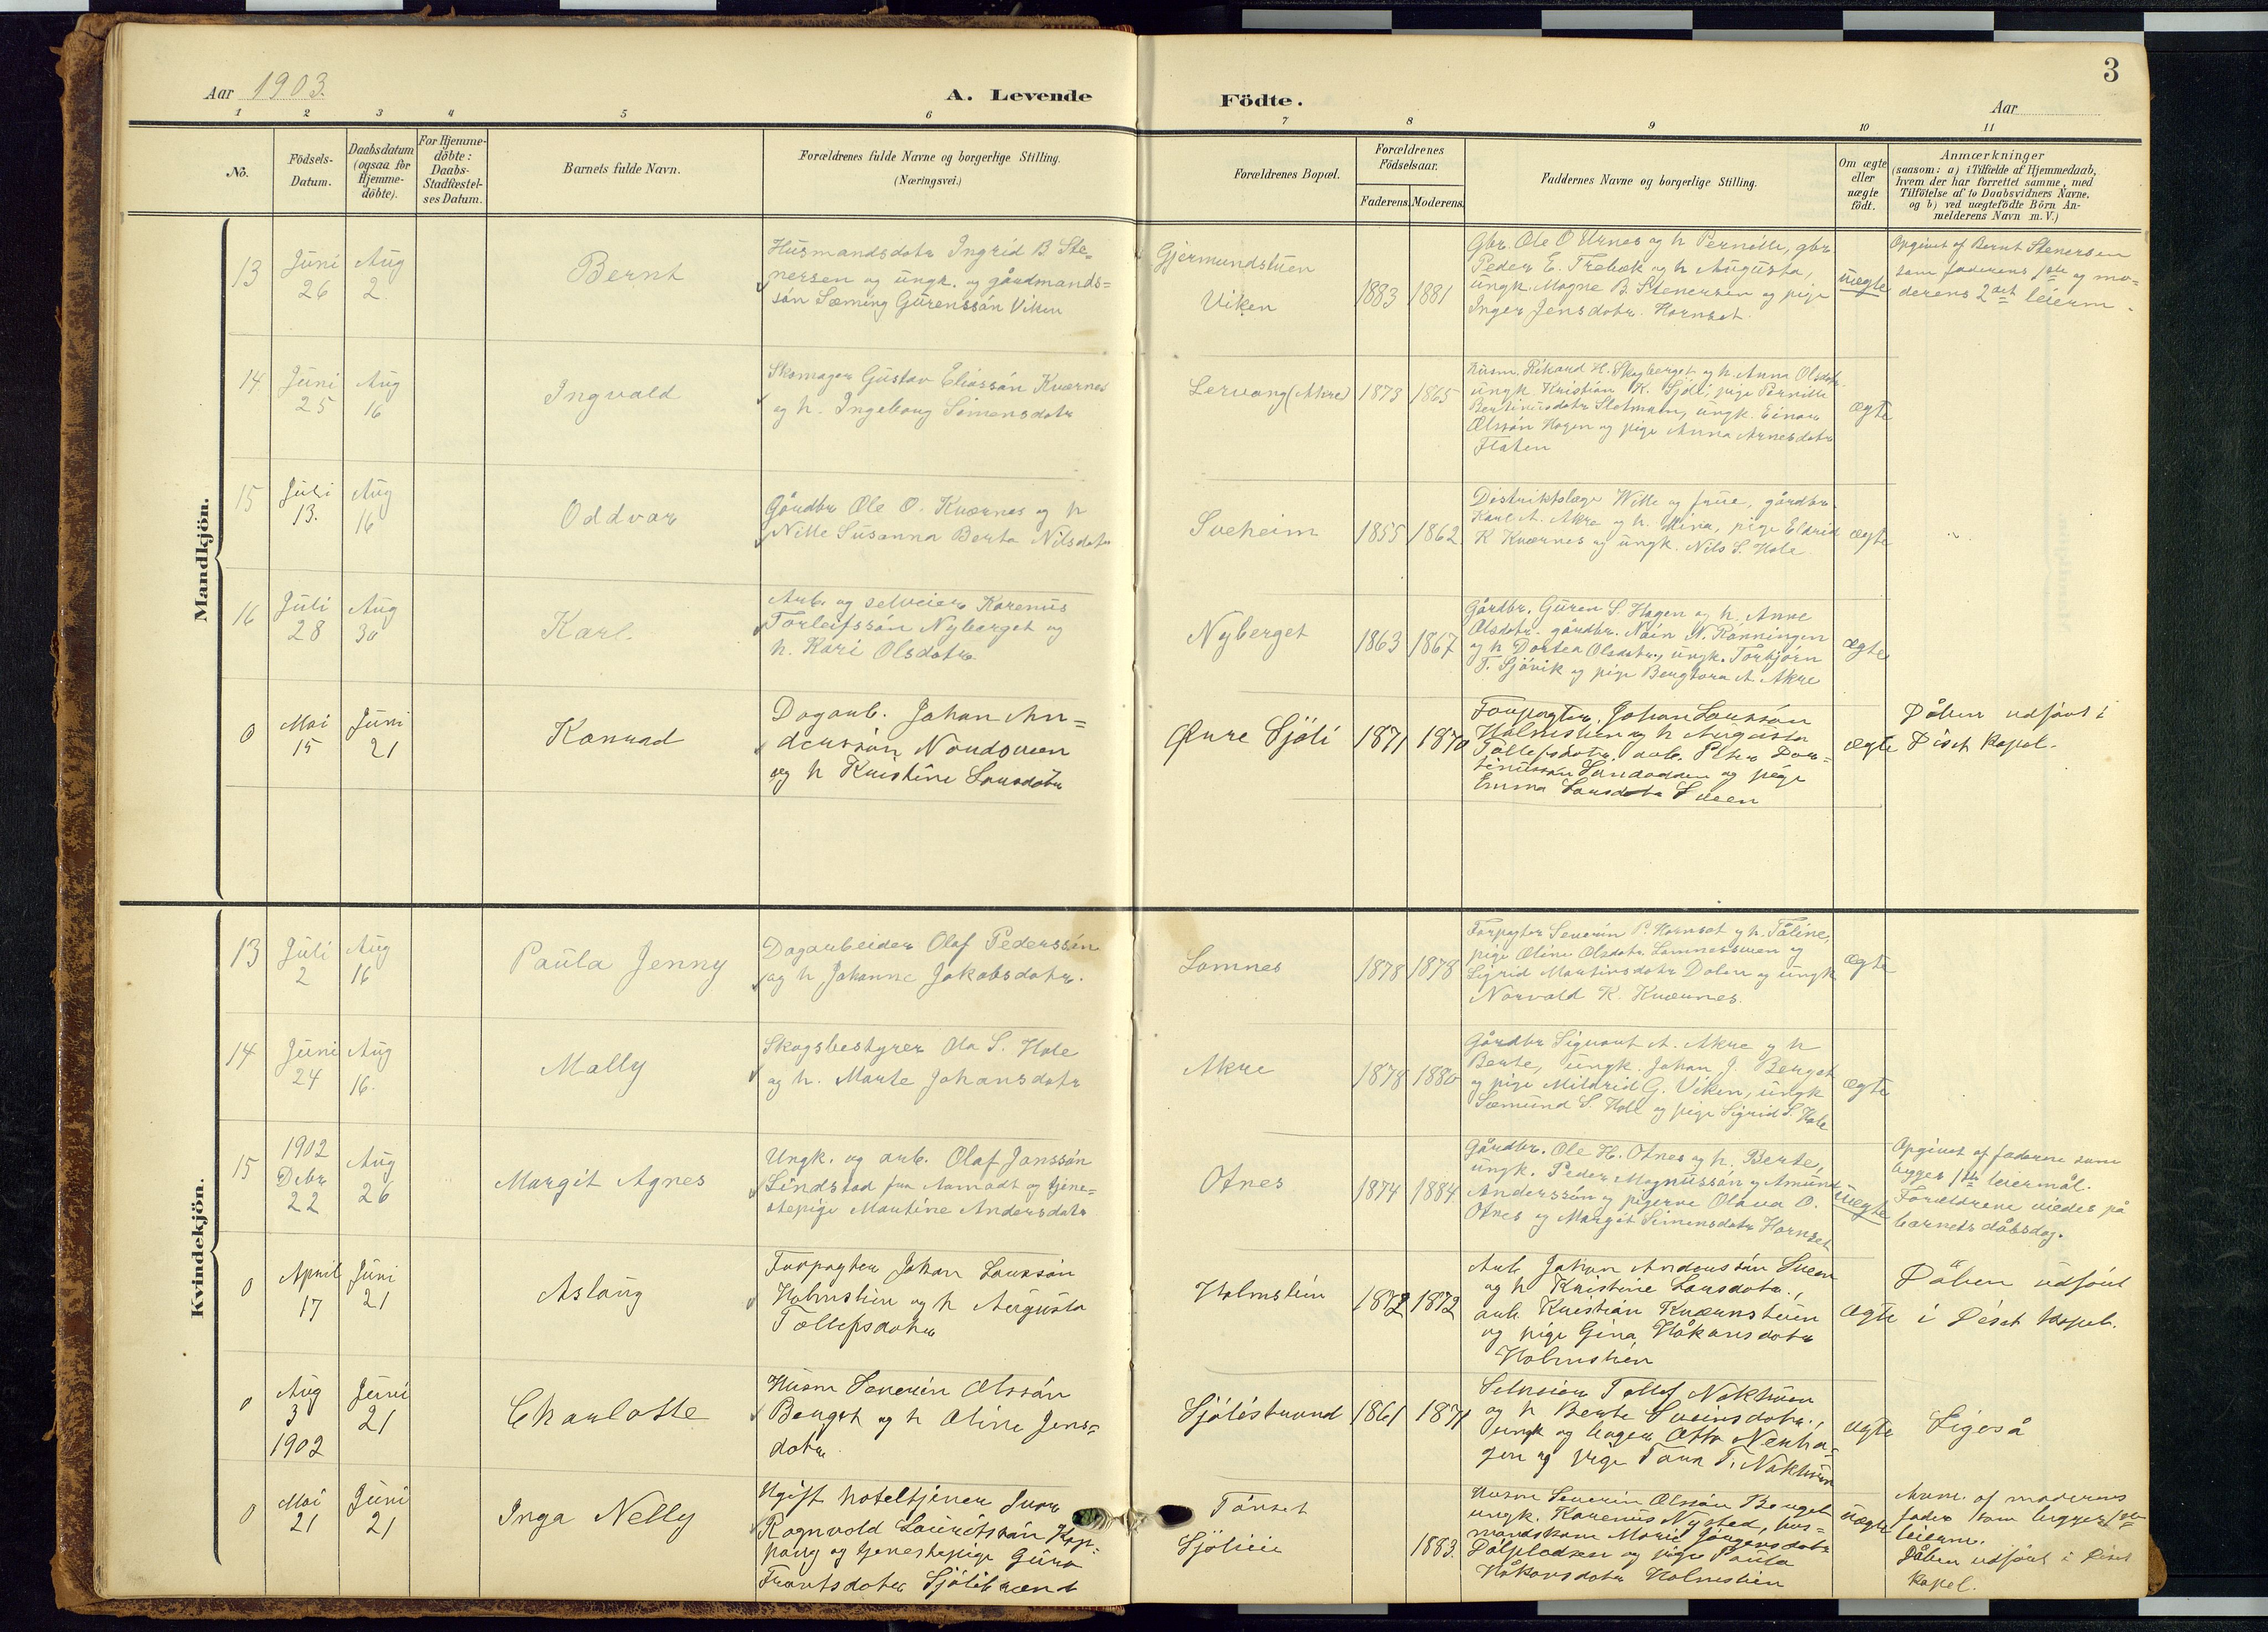 3
Aar 1903.
A. Levende Födte.
Aar
1 2 3 4 5 6 7 8 9 10 11
Nö.
Födsels-
Datum.
Daabsdatum
(ogsaa for
Hjemme-
döbte).
For Hjemme-
döbte:
Daabs-
Stadfæstel-
ses Datum.
Barnets fulde Navn.
Forældrenes fulde Navne og borgerlige Stilling.
(Næringsvei.)
Forældrenes Bopæl.
Forældrenes
Födselsaar.
Faderens. Moderens.
Faddernes Navne og borgerlige Stilling.
Om ægte
eller
uægte
födt.
Anmærkninger
(saasom: a) i Tilfælde af Hjemmedaab,
hvem der har forrettet samme, med
Tilföielse af to Daabsvidners Navne.
og b) ved uægtefödte Börn An-
melderens Navn m. V.)
Mandkjön.
13
Juni
26
Aug
2.
Bernt
Husmandsdotr Ingrid B Ste-
nersen og ungk. og gårdmands-
søn Sæming Gurenssön Viken
Gjermundstuen
Viken
1883 1881
Gbr. Ole O Urnes og h Pernille, gbr
Peder E. Trebæk og h Augusta,
ungk. Magne B. Stenersen og pige
Inger Jensdotr. Hornset.
uægte
Opgivet af Bernt Stenersen
som faderens 1ste og mo-
derens 2det leierm.
14.
Juni
25
Aug
16
Ingvald
Skomager Gustav Eliassön Kværnes
og h. Ingeborg Simensdotr
Lervang (Akre)
1873 1865
Husm. Rikard H. Skyberget og h. Anna Olsdotr.
ungk Kristian K. Sjöli, pige Pernille
Bertinusdotr Slotmoen, ungk. Einar
Olssön Hagen og pige Anna Arnesdotr
Flaten
ægte
15
Juli
13.
Aug
16
Oddvar
Gårdbr Ole O. Kværnes og h
Nille Susanna Berta Nilsdotr
Sveheim
1855 1862
Distriktslæge Wille og frue, gårdbr.
Karl A. Akre og h. Mina, pige Eldrid
K Kværnes og ungk. Nils S. Hole
ægte
16
Juli
28
Aug
30
Karl.
Arb. og selveier Karenus
Torleifssön Nyberget og
h. Kari Olsdotr.
Nyberget
1863 1867
Gårdbr. Guren S. Hagen og h. Anne
Olsdotr. gårdbr. Nain N. Rönningen
og h Dortea Olsdotr., ungk. Torbjörn
T. Sjövik og pige Bergtora A Akre
ægte
0
Mai
15
Juni
21
Konrad
Dagarb. Johan An-
derssön Nordsveen
og h Kristine Larsdotr
Øvre Sjöli
1871 1870
Forpagter Johan Larssön
Holmstien og h Augusta
Tollefsdotr, arb. Peter Dor-
tinussön Sandodden og pige
Emma Larsdotr Sveen
ægte
Dåben udfört i
Diset Kapel.
Kvindekjön.
13
Juli
2
Aug
16
Paula Jenny
Dagarbeider Olaf Pederssön
og h Johanne Jakobsdotr.
Lomnes
1878 1878
Forpagter Severin P. Hornset og h. Tåline,
pige Oline Olsdotr. Lomnessveen og
Sigrid Martinsdotr Dolen og ungk
Norvald K. Kværnes.
ægte
14
Juni
24
Aug
16.
Mally
Skogsbestyrer Ola S. Hole
og h. Marte Johansdotr
Akre
1878 1880
Gårdbr Sigvart A. Akre og h
Berte, ungk. Johan J. Berget
og pige Mildrid G. Viken, ungk
Sæmund S. Hole og pige Sigrid S. Hole
ægte
15
1902
Debr
22
Aug
26
Margit Agnes
Ungk. og arb. Olaf Janssön
Lindstad fra Aamodt og tjene-
stepige Martine Andersdotr
Otnes
1874 1884
Gårdbr. Ole H. Otnes og h. Berte,
ungk. Peder Magnussön og Amund
Anderssön og pigerne Olava O.
Otnes og Margit Simensdotr Hornset
uægte
Opgivet af faderen som
begges 1ste leiermål.
Forældrene viedes på
barnets dåbsdag.
0
April
17
Juni
21
Aslaug
Forpagter Johan Larssön
Holmstien og h Augusta
Tollefsdotr
Holmstien
1872 1872
Arb. Johan Anderssön Sveen
og h Kristine Larsdotr.,
arb. Kristian Kværnstuen
og pige Gina Håkonsdotr
Holmstien
ægte
Dåben udfört
i Diset Kapel.
0
Aug
3
1902
Juni
21
Charlotte
Husm Severin Olssön
Berget og h Oline Jens-
dotr
Sjölistrand
1861 1871
Selveier Tollef Nøktuen
og h Berte Sveinsdotr.,
ungk og bager Otto
og pige T. Nøktuen
ægte
Ligeså
0
Mai
21
Juni
21
Inga Nelly
Ugift hoteltjener
Ragnvald Lauritssön Kop-
pang og tjenestepige Guro
Frantsdotr Sjölistrand
Tönset
Sjölien
1883.
Husm Severin Olssön Berget
ungk. Karenus Nysted, hus-
mandskone Marie Jörgensdotr
Dölpladsen og pige Paula
Håkonsdotr Holmstien
uægte
Anm. af moderens
fader som begges 1ste
leierm.
Dåben udfört i Diset
Kapel.